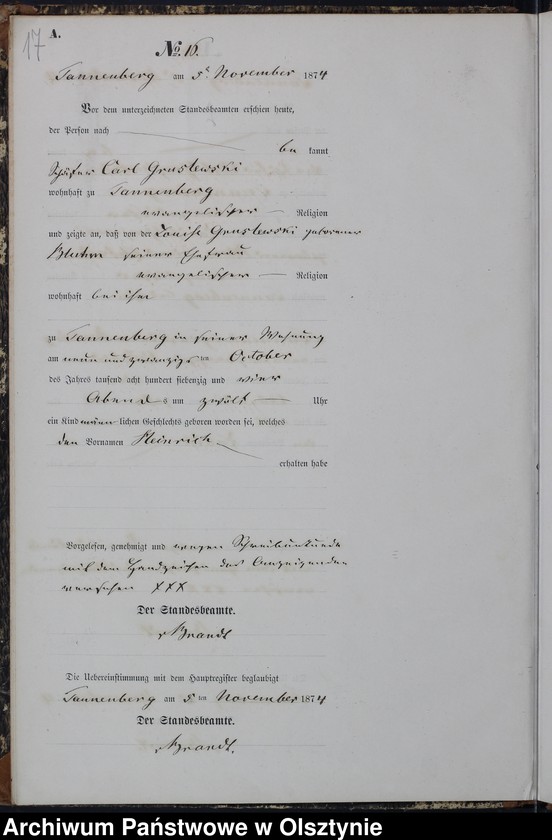 17
A.
No. 16.
Tannenberg am 5t November 1874
Vor dem unterzeichneten Standesbeamten erschien heute,
der Person nach
be kannt
Schäfer Carl Gruslewski
wohnhaft zu Tannenberg
evangelischer Religion
und zeigte an, daß von der Louise Gruslewski geborener
Bluhm seiner Ehefrau
evangelischer Religion
wohnhaft bei ihm
zu Tannenberg in seiner Wohnung
am neun und zwanzigsten October
des Jahres tausend acht hundert siebenzig und vier
Abends um zwölf Uhr
ein Kind männlichen Geschlechts geboren worden sei, welches
den Vornamen Heinrich
erhalten habe
Vorgelesen, genehmigt und wegen Schreibunkunde
mit dem Handzeichen des Anzeigenden
versehen XXX
Der Standesbeamte.
Brandt
Die Uebereinstimmung mit dem Hauptregister beglaubigt
Tannenberg am 5ten November 1874
Der Standesbeamte.
Brandt.
Archiwum Państwowe w Olsztynie